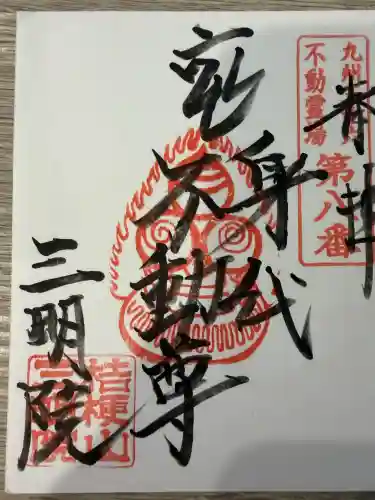 奉拝
九州
不動霊場
第八番
身代
不動尊
三明院
桔梗山
三明院